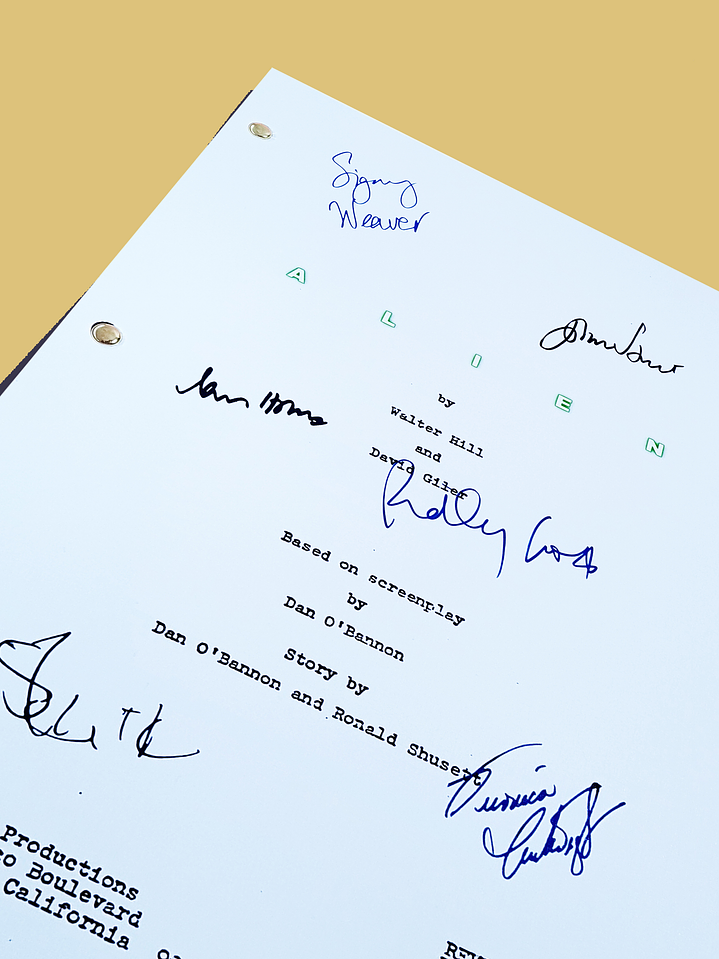 Sigourney
Weaver
A L I E N
by
Walter Hill
and
David Giler
Ian Holm
Ridley Scott
Based on screenplay
by
Dan O'Bannon
Story by
Dan O'Bannon and Ronald Shusett
Veronica
Cartwright
Productions
Boulevard
California